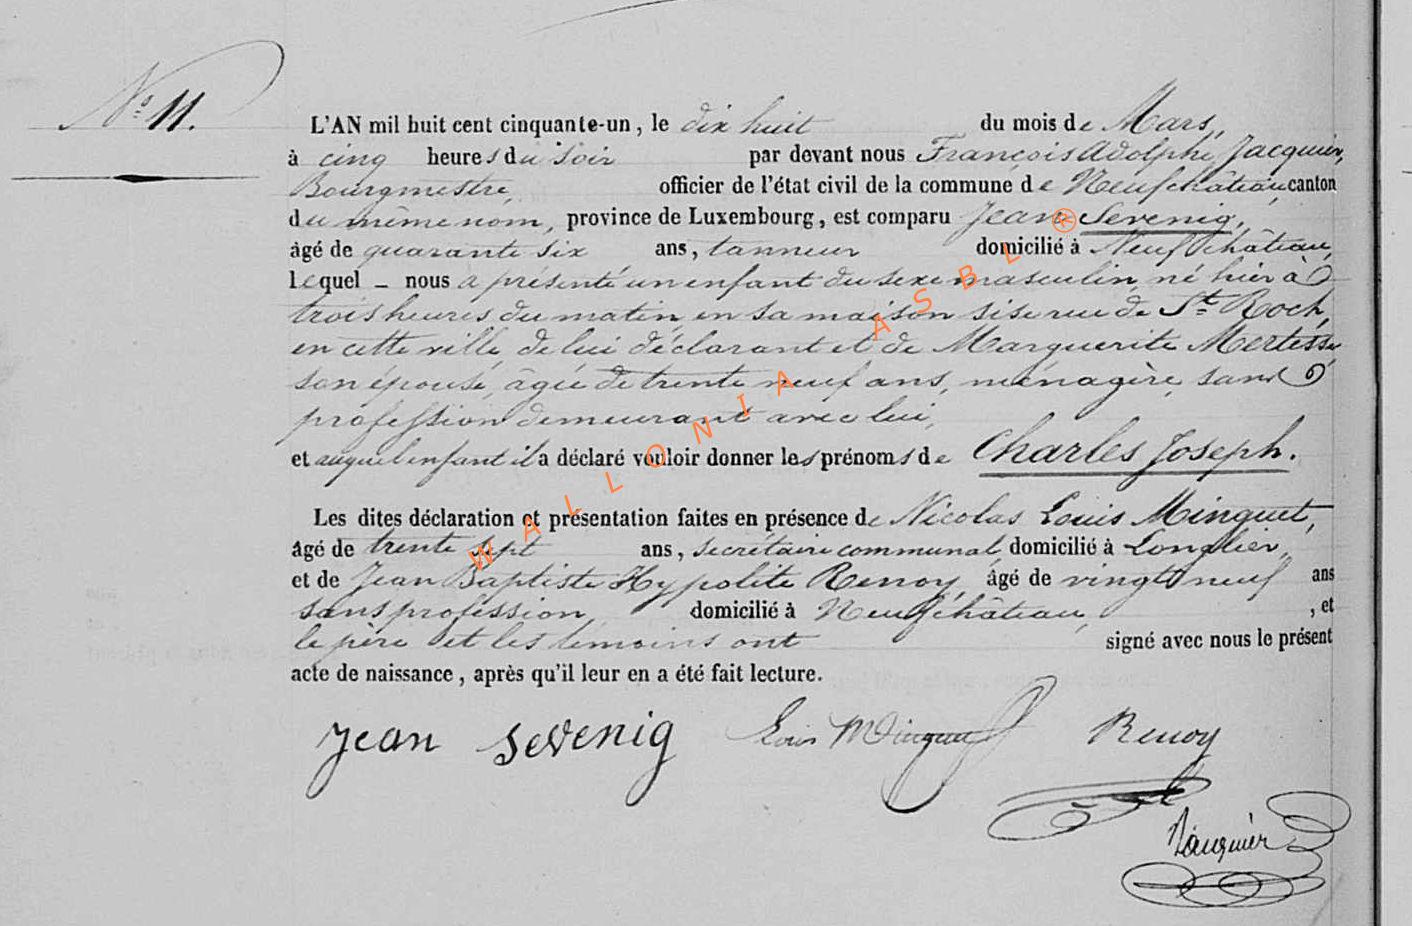 N.° 11.
L'AN mil huit cent cinquante-un, le dix huit du mois de Mars,
à cinq heures du soir par devant nous François Adolphe Jacquier,
Bourgmestre, officier de l'état civil de la commune de Neufchâteau, canton
du même nom, province de Luxembourg, est comparu Jean Sevenig,
âgé de quarante six ans, tanneur domicilié à Neufchâteau,
lequel – nous a présenté un enfant du sexe masculin, né hier à
trois heures du matin, en sa maison sise rue de St Roch,
en cette ville, de lui déclarant et de Marguerite
son épouse, âgée de trente neuf ans, ménagère, sans
profession demeurant avec lui,
et auquel enfant il a déclaré vouloir donner les prénoms de Charles Joseph.
Les dites déclaration et présentation faites en présence de Nicolas Louis Minguet,
âgé de trente sept ans, secrétaire communal, domicilié à Longlier,
et de Jean Baptiste Hypolite Renoy, âgé de vingt neuf ans
sans profession, domicilié à Neufchâteau, , et
le père et les témoins ont signé avec nous le présent
acte de naissance, après qu'il leur en a été fait lecture.
Jean Sevenig Louis Minguet Renoy
Jacquier
WALLONIA ASBL ®